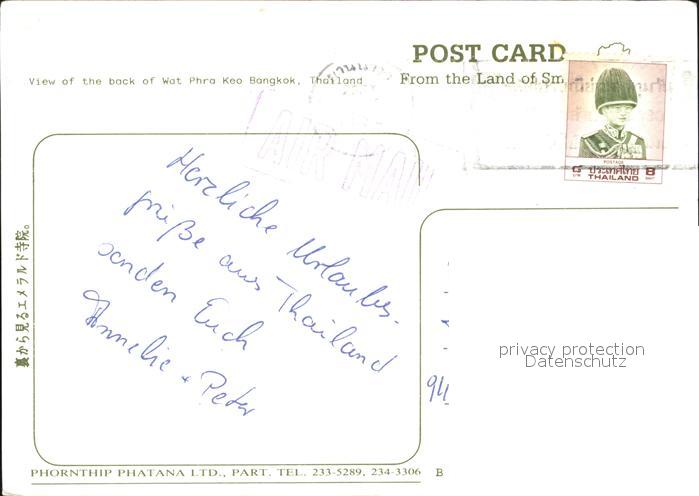 POST CARD
View of the back of Wat Phra Keo Bangkok, Thailand
From the Land of Sm
AIR MAIL
POSTAGE
๘ ประเทศไทย 8
บาท THAILAND BAHT
Herzliche Urlaubs-
grüße aus Thailand
senden Euch
Annelie + Peter
裏から見るエメラルド寺院。
94
privacy protection
Datenschutz
PHORNTHIP PHATANA LTD., PART. TEL. 233-5289, 234-3306 B